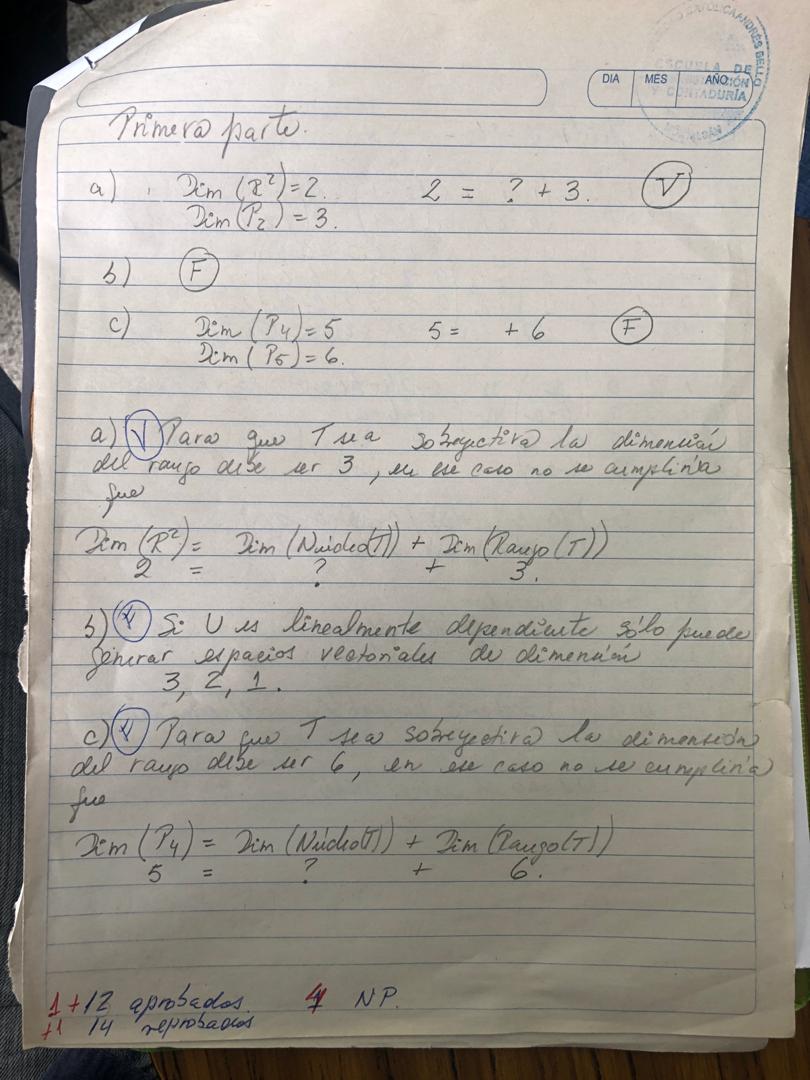 CATÓLICA ANDRÉS BELLO
ESCUELA DE
Y CONTADURÍA
DIA MES AÑO
Primera parte.
a) Dim (R²) = 2. 2 = ? + 3. V
Dim (P₂) = 3.
b) F
c) Dim (P₄) = 5 5 = + 6 F
Dim (P₅) = 6.
a) V Para que T sea sobreyectiva la dimensión
del rango debe ser 3, en ese caso no se cumpliría
que
Dim (R²) = Dim (Núcleo(T)) + Dim (Rango (T))
2 = ? + 3.
b) F Si U es linealmente dependiente sólo puede
generar espacios vectoriales de dimensión
3, 2, 1.
c) F Para que T sea sobreyectiva la dimensión
del rango debe ser 6, en ese caso no se cumpliría
que
Dim (P₄) = Dim (Núcleo(T)) + Dim (Rango(T))
5 = ? + 6.
1 + 12 aprobados. 4 NP.
+1 14 reprobados